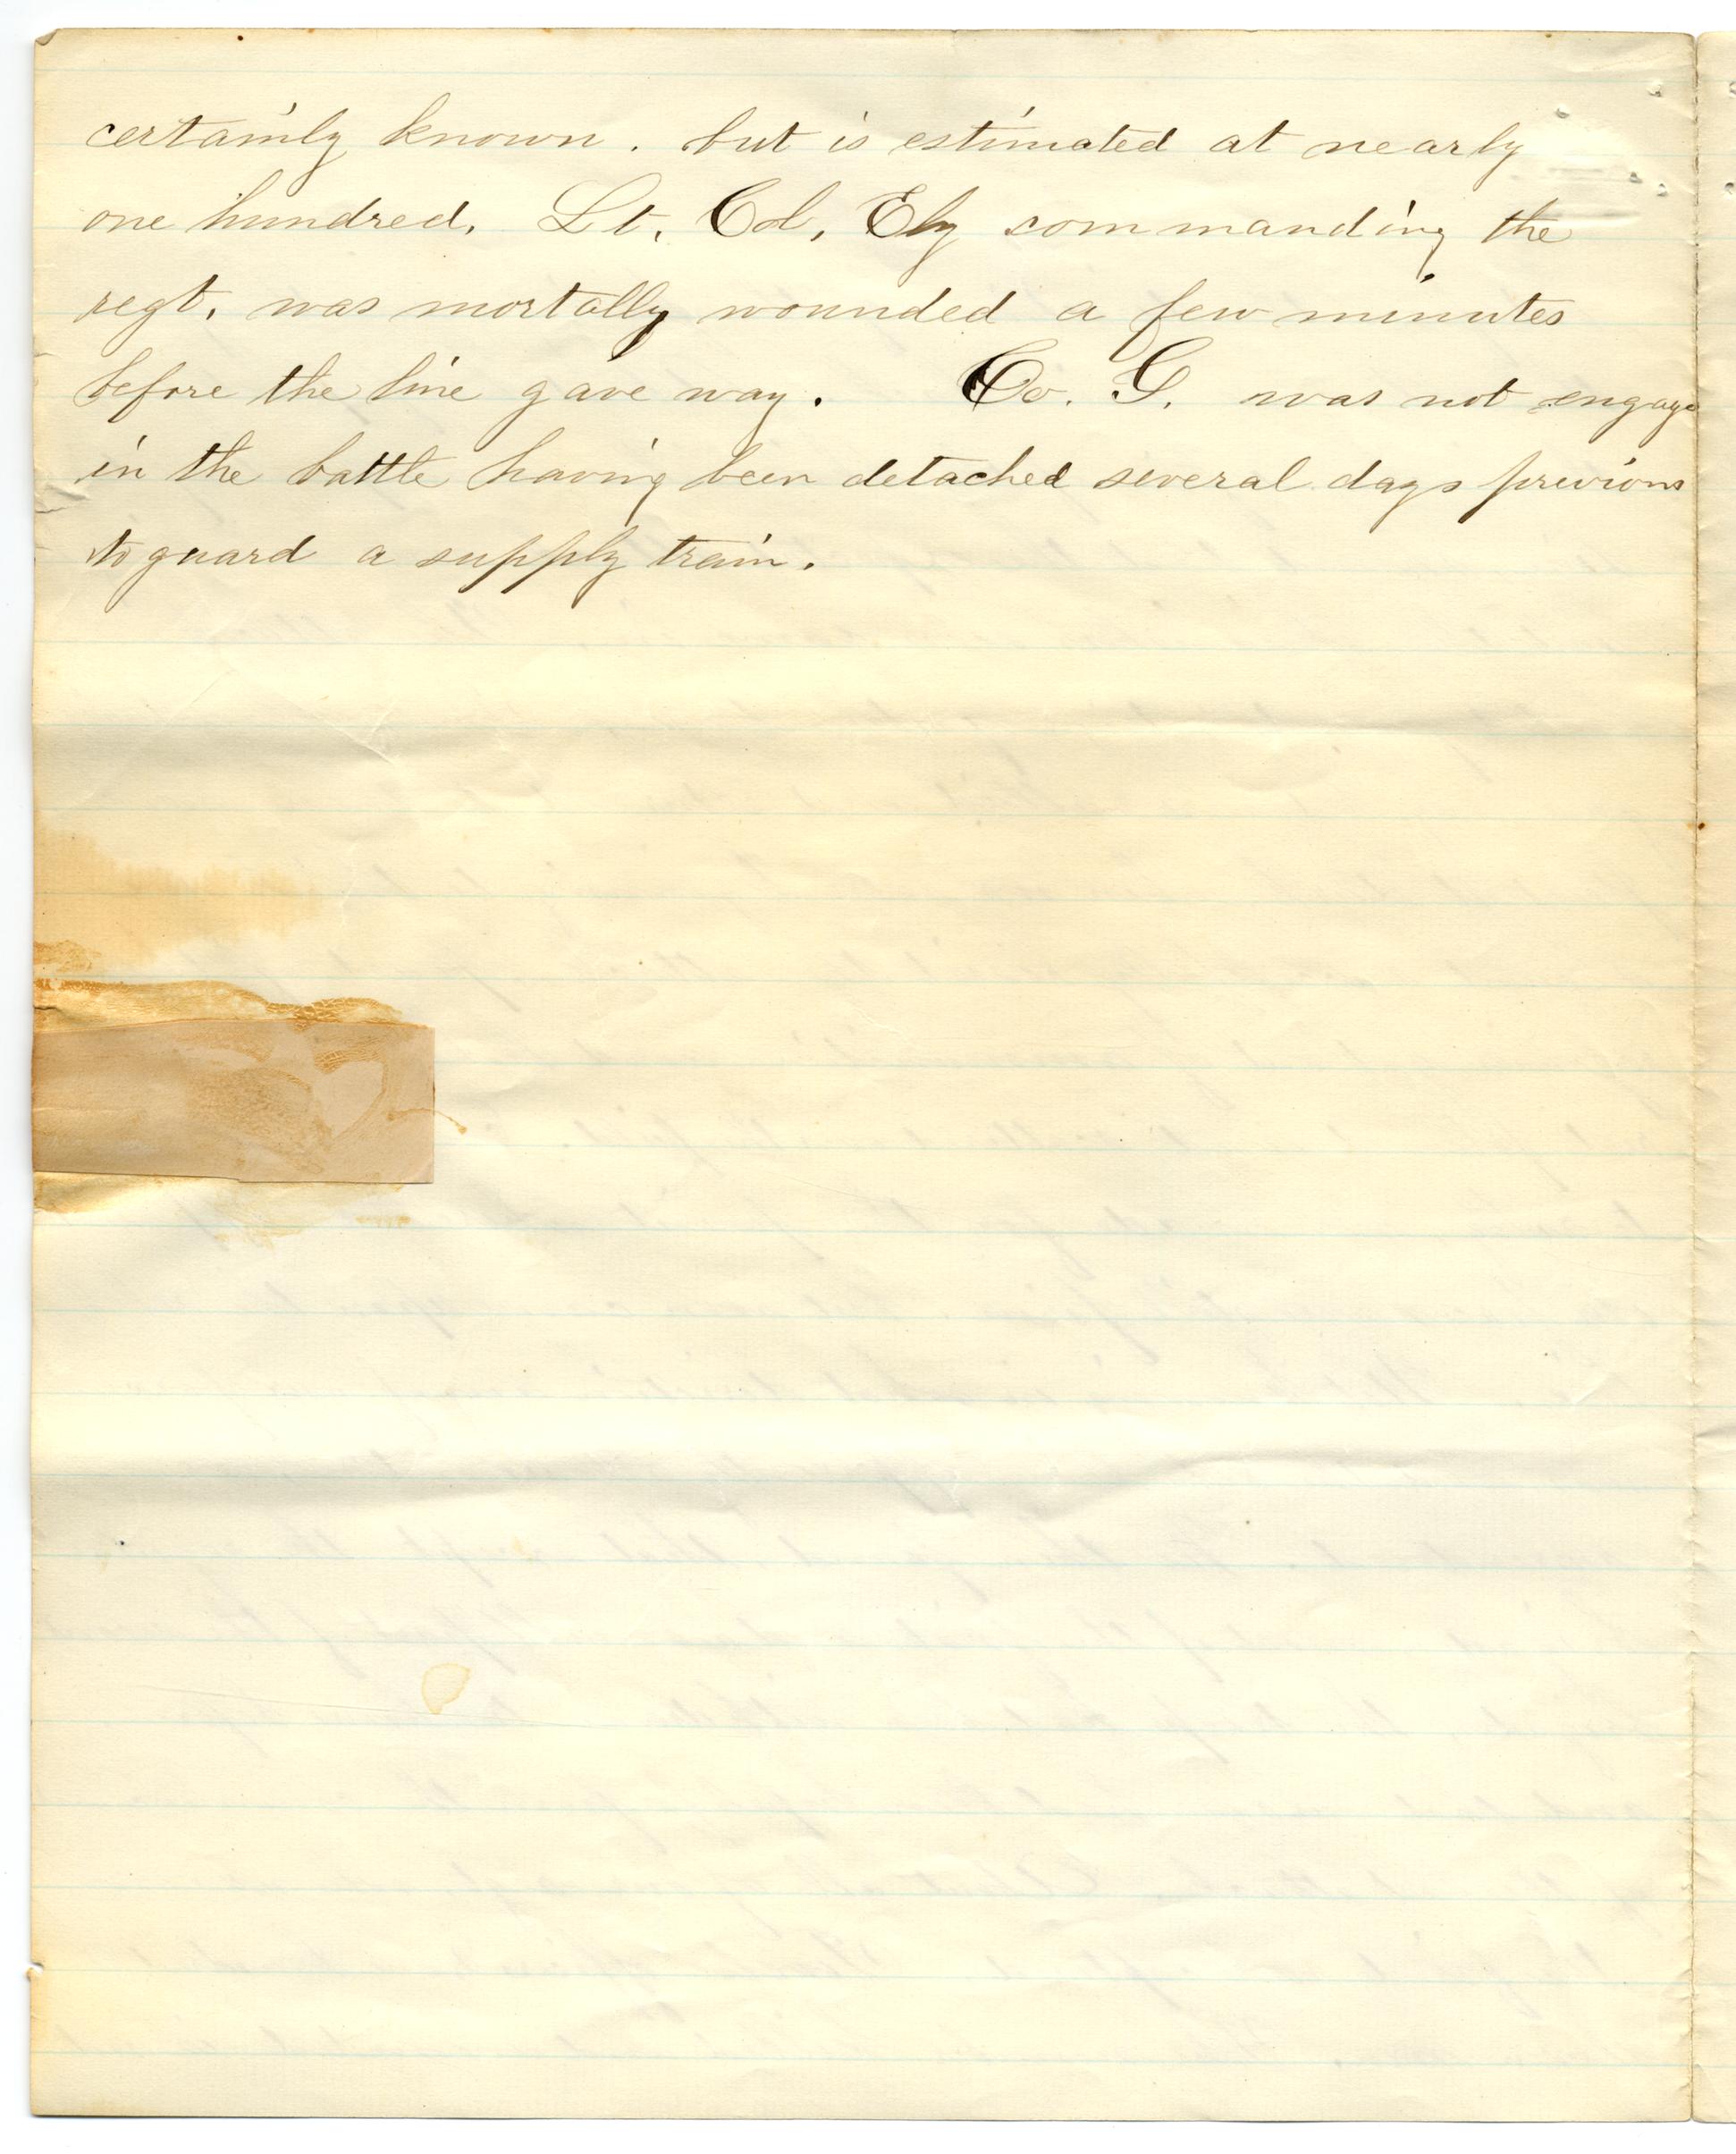 certainly known. but is estimated at nearly
one hundred. Lt. Col. Ely commanding the
regt. was mortally wounded a few minutes
before the line gave way. Co. G. was not engage
in the battle having been detached several days previous
to guard a supply train.